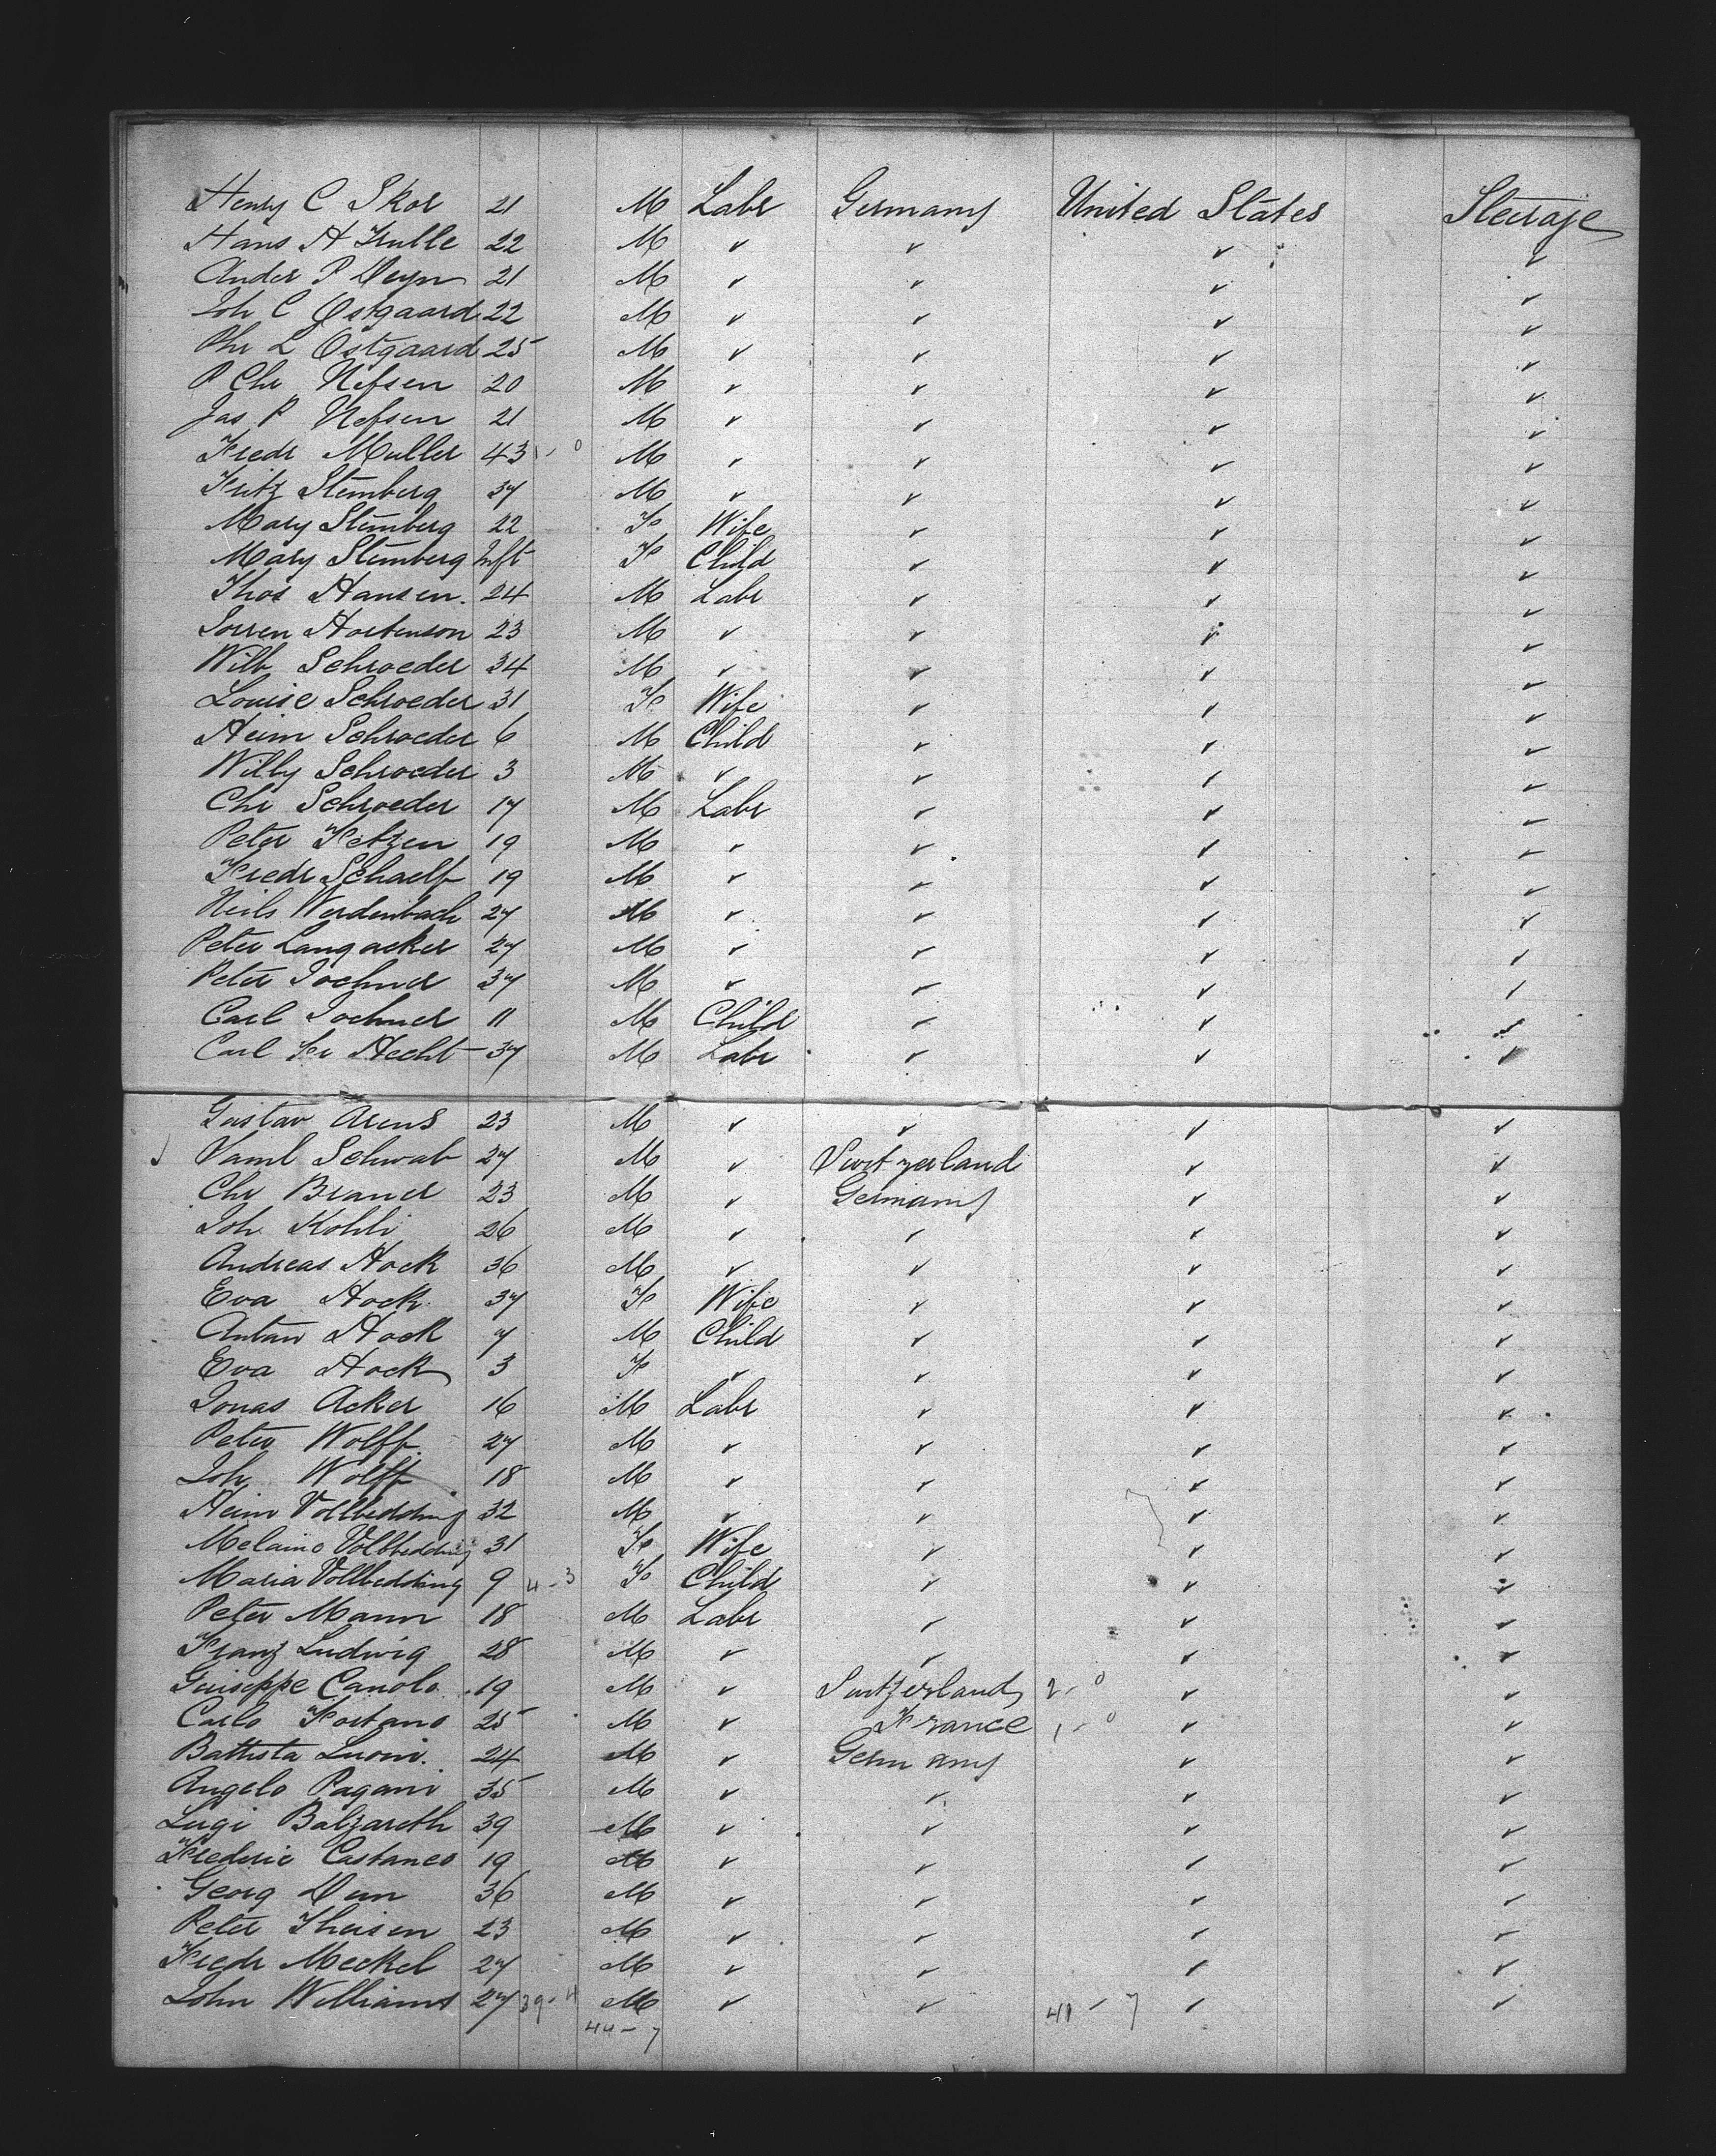 Henry C Skor 21 M Labr Germany United States Steerage
Hans H Krulle 22 M ✓ ✓ ✓ ✓
Ander P Deyn 21 M ✓ ✓ ✓ ✓
Joh C Ostgaard 22 M ✓ ✓ ✓ ✓
Chr L Ostgaard 25 M ✓ ✓ ✓ ✓
P Chr Nissen 20 M ✓ ✓ ✓ ✓
Jas P Nissen 21 M ✓ ✓ ✓ ✓
Fredr Muller 43 1-0 M ✓ ✓ ✓ ✓
Fritz Sternberg 37 M ✓ ✓ ✓ ✓
Mary Sternberg 22 F Wife ✓ ✓ ✓
Mary Sternberg Inft F Child ✓ ✓ ✓
Thos Hansen 24 M Labr ✓ ✓ ✓
Sorren Hortenson 23 M ✓ ✓ ✓ ✓
Wilh Schroeder 34 M ✓ ✓ ✓ ✓
Louise Schroeder 31 F Wife ✓ ✓ ✓
Heinr Schroeder 6 M Child ✓ ✓ ✓
Willy Schroeder 3 M ✓ ✓ ✓ ✓
Chr Schroeder 17 M Labr ✓ ✓ ✓
Peter Fetzen 19 M ✓ ✓ ✓ ✓
Fredr Schaelf 19 M ✓ ✓ ✓ ✓
Neils Werdenbach 27 M ✓ ✓ ✓ ✓
Peter Langacker 27 M ✓ ✓ ✓ ✓
Peter 37 M ✓ ✓ ✓ ✓
Carl 11 M Child ✓ ✓ ✓
Carl Fr Hecht 37 M Labr ✓ ✓ ✓
Gustav Arens 23 M ✓ ✓ ✓ ✓
✓ Saml Schwab 27 M ✓ Switzerland ✓ ✓
Chr Brand 23 M ✓ Germany ✓ ✓
Joh Kohli 26 M ✓ ✓ ✓ ✓
Andreas Hock 36 M ✓ ✓ ✓ ✓
Eva Hock 37 F Wife ✓ ✓ ✓
Anton Hock 7 M Child ✓ ✓ ✓
Eva Hock 3 F ✓ ✓ ✓ ✓
Jonas Acker 16 M Labr ✓ ✓ ✓
Peter Wolff 27 M ✓ ✓ ✓ ✓
Joh Wolff 18 M ✓ ✓ ✓ ✓
Heinr Vollbedding 32 M ✓ ✓ ✓ ✓
Melaino Vollbedding 31 F Wife ✓ ✓ ✓
Maria Vollbedding 9 4-3 F Child ✓ ✓ ✓
Peter Mann 18 M Labr ✓ ✓ ✓
Franz Ludwig 28 M ✓ ✓ ✓ ✓
Guiseppe Canolo 19 M ✓ Switzerland 2-0 ✓ ✓
Carlo Fortano 25 M ✓ France 1-0 ✓ ✓
Battista Luoni 24 M ✓ Germany ✓ ✓
Angelo Pagani 35 M ✓ ✓ ✓ ✓
Luigi Balzareth 39 M ✓ ✓ ✓ ✓
Frederic Castaneo 19 M ✓ ✓ ✓ ✓
Georg Dun 36 M ✓ ✓ ✓ ✓
Peter Theisen 23 M ✓ ✓ ✓ ✓
Fredr Meckel 27 M ✓ ✓ ✓ ✓
John Williams 27 39-4 M ✓ ✓ 41-7 ✓ ✓
44-7